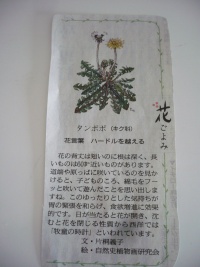 花ごよみ
タンポポ (キク科)
花言葉 ハードルを越える
花の背丈は短いのに根は深く、長
いものは50㌢近いものがあります。
道端や原っぱに咲いているのを見か
けると、子どものころ、綿毛をフー
ッと吹いて遊んだことを思い出しま
すね。このゆったりとした気持ちが
胃の緊張を和らげ、食欲増進に効果
的です。日が当たると花が開き、沈
むと花を閉じる性質から西洋では
「牧童の時計」といわれています。
文・片桐義子
絵・自然史植物画研究会